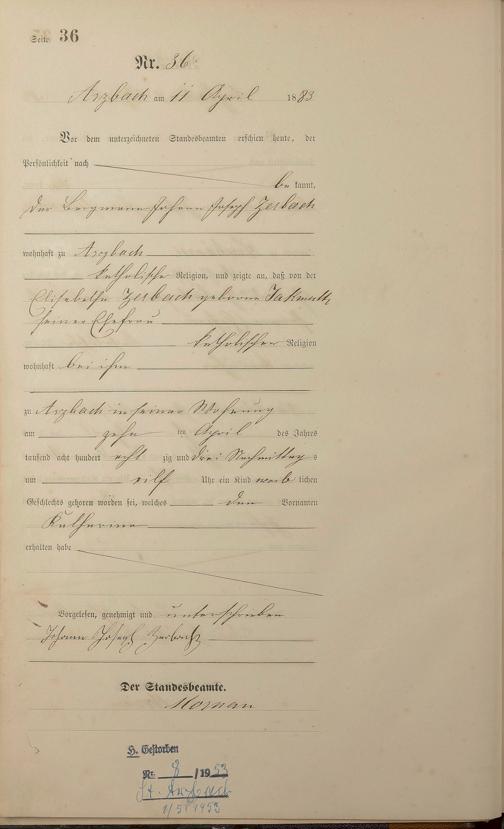 Seite 36
Nr. 36
Arzbach am 11 April 1883
Vor dem unterzeichneten Standesbeamten erschien heute, der
Persönlichkeit nach
be kannt,
der Bergmann Johann Joseph Zerbach
wohnhaft zu Arzbach
katholische Religion, und zeigte an, daß von der
Elisabetha Zerbach geborne
seiner Ehefrau
katholischer Religion
wohnhaft bei ihm
zu Arzbach in seiner Wohnung
am zehn ten April des Jahres
tausend acht hundert acht zig und drei Nachmittag s
um eilf Uhr ein Kind weib lichen
Geschlechts geboren worden sei, welches den Vornamen
Katharina
erhalten habe
Vorgelesen, genehmigt und unterschrieben
Johann Joseph Zerbach
Der Standesbeamte.
H. Gestorben
Nr. 8 /1953
St. A. Arzbach
1953